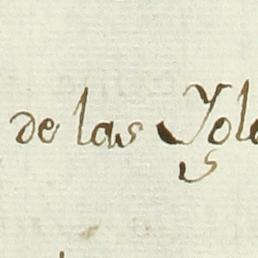 de las Yole